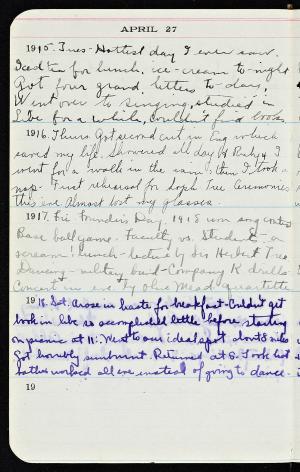 APRIL 27
1915. Tues - Hottest day I ever saw.
Iced tea for lunch, ice-cream to-night
Got four grand letters to-day.
Went over to singing, studied in
Libe for a while, couldn't find books
1916. Thurs Got second cut in Eng which
saved my life. Showered all day but & I
went for a walk in the rain, then I took a
nap. First rehearsal for Soph Tree Ceremonies
this eve Almost lost my glasses.
1917. Fri Founder's Day. 1918 won song contest
Base ball game - Faculty vs. Students - a
scream! Lunch - lecture by Sir Herbert Tree
Dancing - military band - Company K drills.
Concert in eve by Olive Mead quartette
1918. Sat. Arose in haste for breakfast - Couldn't get
book in libe so accomplished little before starting
on picnic at 11: Went to our ideal spot about 5 miles
Got horribly sunburnt. Returned at 8. Took hot
bath & worked all eve instead of going to dance.
19